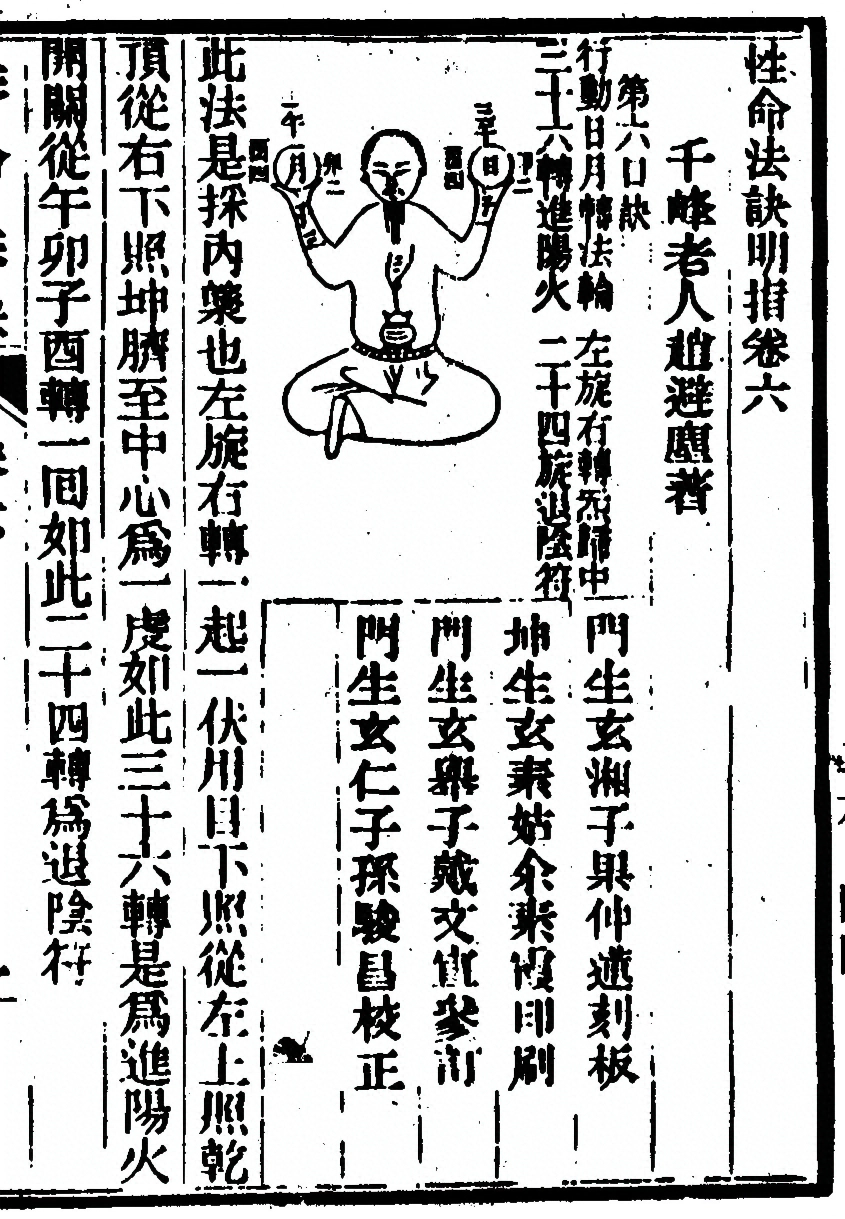 性命法訣明指卷六
千峰老人趙避塵著
第六口訣
行動日月轉法輪
左旋右轉炁歸中
三十六轉進陽火
二十四旋退陰符
三午
日
卯二
子一
酉四
一午
月
卯二
酉四
門生玄湘子果仲蓮刻板
坤生玄素姑余素霞印刷
門生玄樂子戴文宣參訂
門生玄仁子孫駿昌校正
此法是採內藥也左旋右轉一起一伏用目下照從左上照乾
頂從右下照坤臍至中心爲一度如此三十六轉是爲進陽火
開關從午卯子酉轉一回如此二十四轉爲退陰符